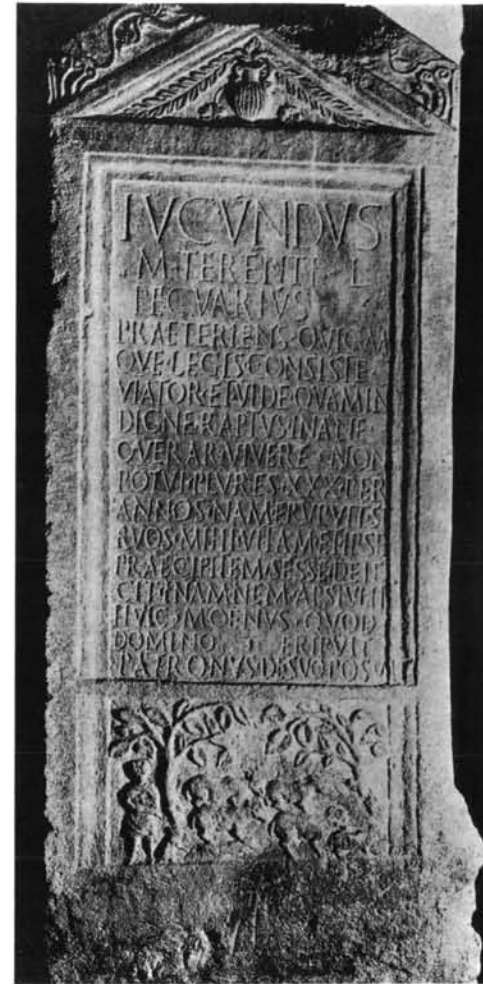 IVCVNDVS
M·TERENTI·L
PECVARIVS
PRAETERIENS·QVICVM
QVE·LEGIS·CONSISTE
VIATOR·ET·VIDE·QVAM·IN
DIGNE·RAPTVS·INANE
QVERAR·VIVERE·NON
POTVI·PLVRES·XXX·PER
ANNOS·NAM·ERVPVIT·SE
RVOS·MIHI·VITAM·ET·IPSE
PRAECIPITEM·SESSE·DEIE
CIT·IN·AMNEM·APSTVLIT
HVIC·MOENVS·QVOD
DOMINO·ERIPVIT
PATRONVS·DE·SVO·POSVIT